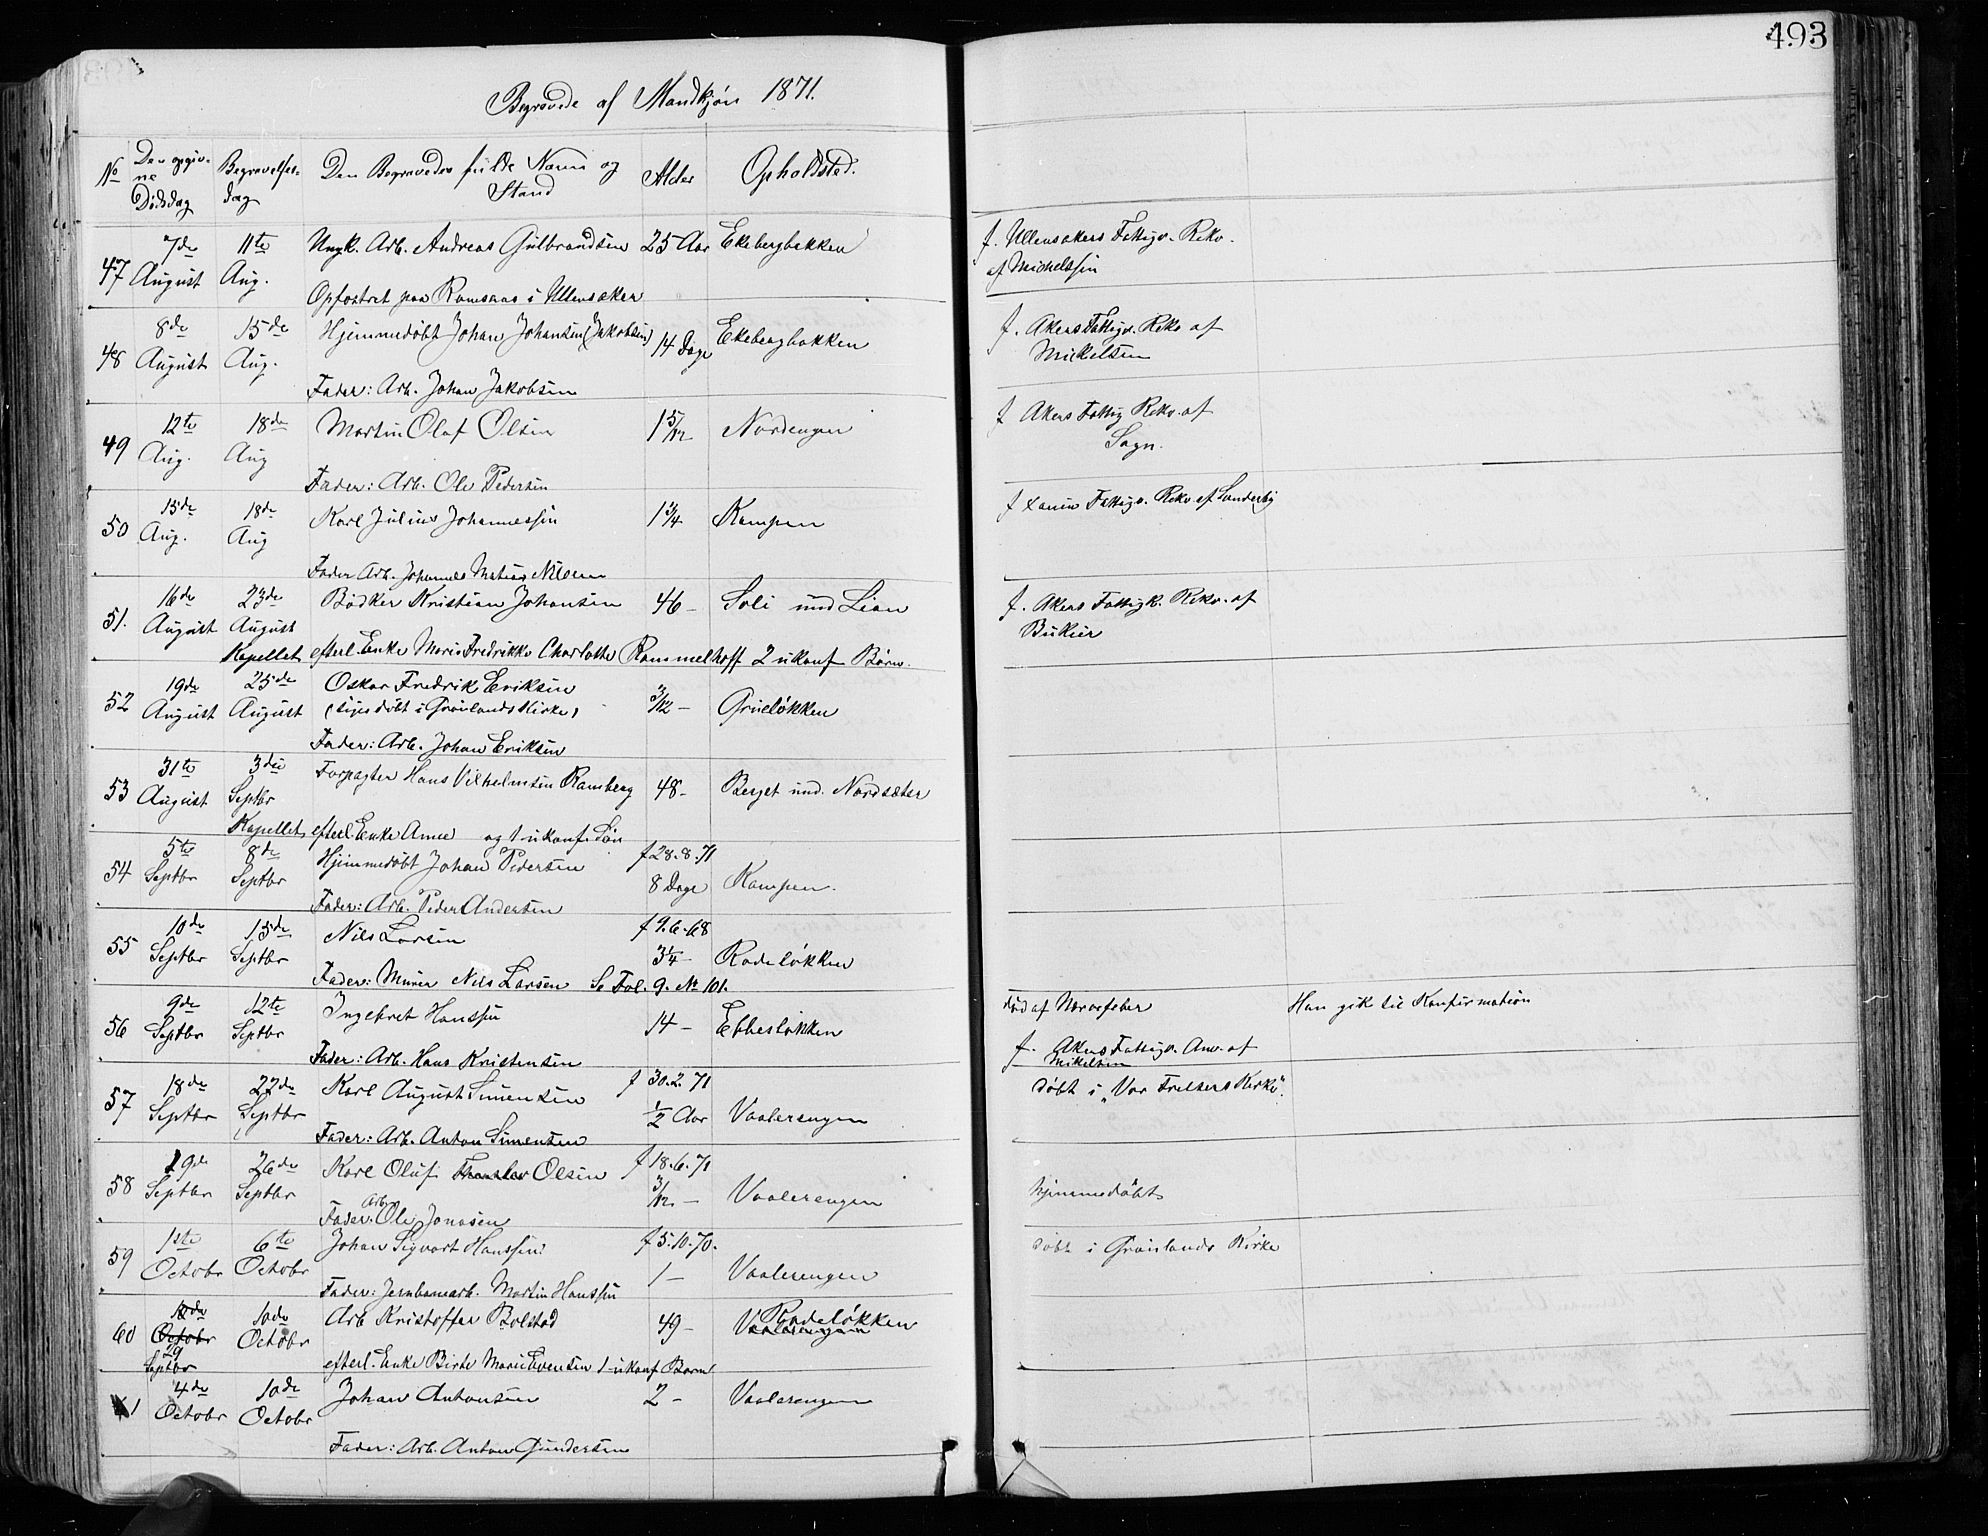 493
Begravede af Mandkjøn 1871.
No
Den opgiv-
ne
Dødsdag
Begravelses-
dag
Den Begravedes fulde Navn og
Stand
Alder
Opholdsted.
47
7de
August
11te
Aug.
Ungk. Arb. Andreas Gulbrandsen
25 Aar
Ekebergbakken
Opfostret paa Ramsaas i Ullensaker
f. Ullensakers Fattigv. Rekv.
af Michelssen
48
8de
August
15de
Aug.
Hjemmedøbt Johan Johansen (Jakobsen)
14 Dage
Ekebergbakken
Fader: Arb. Johan Jakobsen
f. Akers Fattigv. Rekv af
Mickelsen
49
12te
Aug.
18de
Aug
Martin Olaf Olsen
1 5/12
Nordengen
Fader: Arb. Ole Pedersen
f Akers Fattig Rekv. af
Sogn.
50
15de
Aug.
18de
Aug
Karl Julius Johannessen
1 3/4
Kampen
Fader Arb. Johannes Matias Nilsen
f Fattigv. Rekv. af Sanderby
51.
16de
August
23de
August
Kapellet
Bødker Kristian Johansen
46 –
Soli und Lian
efterl. Enke Marie Fredrikke Charlotte Rommelhoff 2 ukonf Børn.
f. Akers Fattigk. Rekv. af
Bukier
52
19de
August
25de
August
Oskar Fredrik Eriksen
(siges døbt i Grønlands Kirke)
3/12 –
Grueløkken
Fader: Arb. Johan Eriksen
53
31te
August
3die
Septbr
Kapellet
Forpagter Hans Vilhelmsen Ramberg
48 –
Berget und. Nordsæter
efterl. Enke Anne og 1 ukonf. Søn
54
5te
Septbr
8de
Septbr
Hjemmedøbt Johan Pedersen
f 28.8.71
8 Dage
Kampen.
Fader: Arb. Peder Andersen
55
10de
Septbr
15de
Septbr
Nils Larsen
f 9.6.68
3 1/4 –
Rodeløkken
Fader: Murer Nils Larsen Se Fol. 9. No 101.
56
9de
Septbr
12te
Septbr
Ingebret Hanssen
14 –
Ebbesløkken
Fader: Arb. Hans Kristensen
død af Nervefeber
Han gik til Konfirmation
f. Akers Fattigv. Anv. af
Mikelsen
57
18de
Septbr
22de
Septbr
Karl August Simensen
f 30.2.71
1/2 Aar
Vaalerengen
Fader: Arb. Anton Simensen
døbt i "Vor Frelsers Kirke".
58
19de
Septbr
26de
Septbr
Karl Oluf Olsen
f 18.6.71
3/12 –
Vaalerengen
Fader: Arb. Ole Jonasen
hjemmedøbt
59
1ste
Octobr
6te
Octobr
Johan Sigvart Hanssen
f 5.10.70.
1 –
Vaalerengen
Fader: Jernbanearb. Martin Hanssen
døbt i Grønlands Kirke
60
10de
Octobr
29
Septbr
10de
Octobr
Arb Kristoffer Bolstad
49 –
Rodeløkken
Vaalerengen
efterl. Enke Birte Marie Evensen 1 ukonf Barn
61
4de
Octobr
10de
Octobr
Johan Antonsen
2 –
Vaalerengen
Fader: Arb. Anton Gundersen